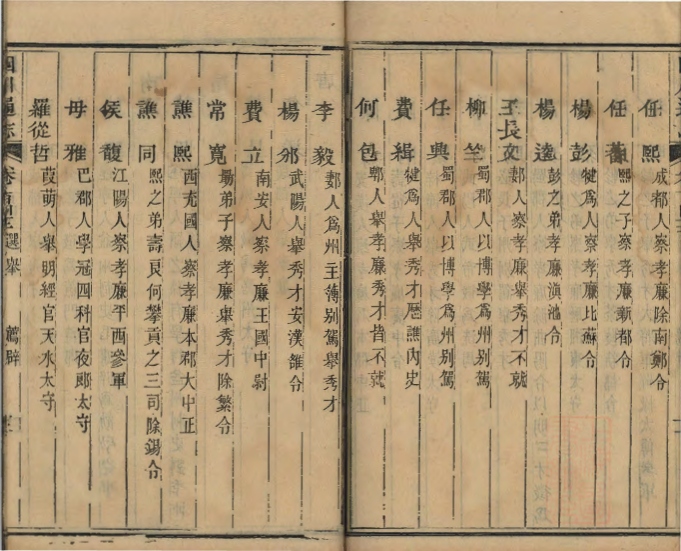 任熙 成都人察孝廉除南鄭令
任蕃 熙之子察孝廉新都令
楊彭 犍爲人察孝廉比蘇令
楊逵 彭之弟孝廉漁涪令
王長文 郪人察孝廉舉秀才不就
柳竺 蜀郡人以博學爲州別駕
任興 蜀郡人以博學爲州別駕
費緝 犍爲人舉秀才歷譙內史
何包 郫人舉孝廉秀才皆不就
李毅 郪人爲州主薄別駕舉秀才
楊邠 武陽人舉秀才安漢雒令
費立 南安人察孝廉王國中尉
常寬 勗弟子察孝廉舉秀才除繁令
譙熙 西充國人察孝廉本郡大中正
譙同 熙之弟壽良何攀貢之三司除錫令
侯馥 江陽人察孝廉平西參軍
毋雅 巴郡人學冠四科官夜郎太守
羅從哲 葭萌人舉明經官天水太守
四川通志 卷 選舉 薦辟